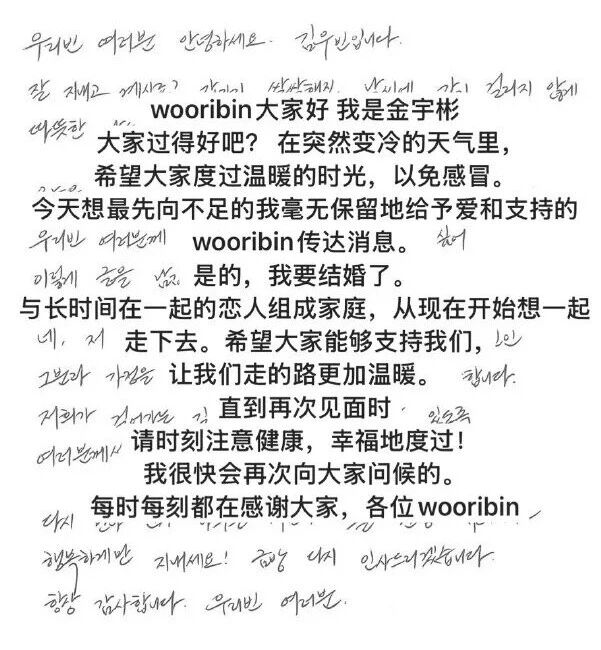 우리빈 여러분 안녕하세요. 김우빈입니다.
잘 지내고 계시죠? 갑자기 쌀쌀해진 날씨에 감기 걸리지 않게
wooribin大家好 我是金宇彬
따뜻한
大家过得好吧? 在突然变冷的天气里，
希望大家度过温暖的时光，以免感冒。
今天想最先向不足的我毫无保留地给予爱和支持的
우리빈 여러분께 wooribin传达消息。 싶어
이렇게 글을 是的，我要结婚了。
与长时间在一起的恋人组成家庭，从现在开始想一起
네, 저 走下去。希望大家能够支持我们，
그분과 가정을 让我们走的路更加温暖。 합니다.
저희가 걸어가는 길 直到再次见面时 있도록
여러분께서 请时刻注意健康，幸福地度过！
我很快会再次向大家问候的。
每时每刻都在感谢大家，各位wooribin
다시
행복하게만 지내세요! 금방 다시 인사드리겠습니다.
항상 감사합니다. 우리빈 여러분.